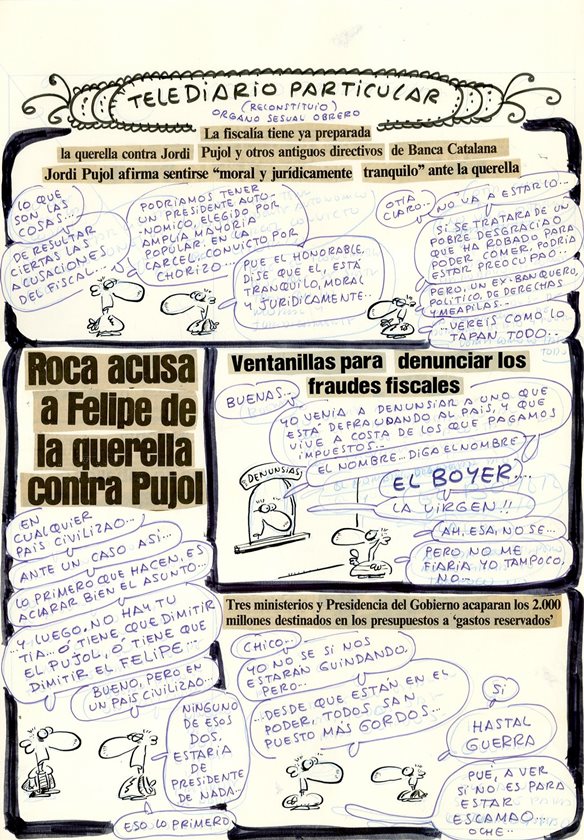 TELEDIARIO PARTICULAR
(RECONSTITUIO)
ORGANO SESUAL OBRERO
La fiscalía tiene ya preparada
la querella contra Jordi Pujol y otros antiguos directivos de Banca Catalana
Jordi Pujol afirma sentirse "moral y jurídicamente tranquilo" ante la querella
LO QUE
SON LAS
COSAS...
DE RESULTAR
CIERTAS LAS
ACUSACIONES
DEL FISCAL...
PODRIAMOS TENER
UN PRESIDENTE AUTO-
NOMICO, ELEGIDO POR
AMPLIA MAYORIA
POPULAR, EN LA
CARCEL, CONVICTO POR
CHORIZO...
PUE EL HONORABLE,
DISE QUE EL, ESTÁ
TRANQUILO, MORAL
Y JURIDICAMENTE...
OTIA
CLARO..
NO VA A ESTARLO...
SI SE TRATARA DE UN
POBRE DESGRACIAO
QUE HA ROBADO PARA
PODER COMER, PODRIA
ESTAR PREOCUPAO...
PERO, UN EX-BANQUERO,
POLITICO, DE DERECHAS
Y MEAPILAS..
..VEREIS COMO LO
TAPAN TODO..
Roca acusa
a Felipe de
la querella
contra Pujol
EN
CUALQUIER
PAIS CIVILIZAO...
ANTE UN CASO ASI...
LO PRIMERO QUE HACEN, ES
ACLARAR BIEN EL ASUNTO...
..Y LUEGO, NO HAY TU
TIA... Ó TIENE, QUE DIMITIR
EL PUJOL, Ó TIENE QUE
DIMITIR EL FELIPE...
BUENO, PERO EN
UN PAIS CIVILIZAO...
NINGUNO
DE ESOS
DOS,
ESTARIA
DE
PRESIDENTE
DE NADA..
ESO LO PRIMERO
Ventanillas para denunciar los
fraudes fiscales
BUENAS...
YO VENIA A DENUNSIAR A UNO QUE
ESTÁ DEFRAUDANDO AL PAIS, Y QUE
VIVE A COSTA DE LOS QUE PAGAMOS
IMPUESTOS...
EL NOMBRE.. DIGA EL NOMBRE
DENUNSIAS
EL BOYER...
LA VIRGEN!!
AH, ESA, NO SE...
PERO, NO ME
FIARIA YO TAMPOCO,
NO...
Tres ministerios y Presidencia del Gobierno acaparan los 2.000
millones destinados en los presupuestos a 'gastos reservados'
CHICO...
YO NO SE SI NOS
ESTARÁN GUINDANDO,
PERO...
..DESDE QUE ESTÁN EN EL
PODER, TODOS SAN
PUESTO MÁS GORDOS...
SI
HASTAL
GUERRA
PUÉ, A VER
SI NO ES PARA
ESTAR
ESCAMAO..
OCHE..